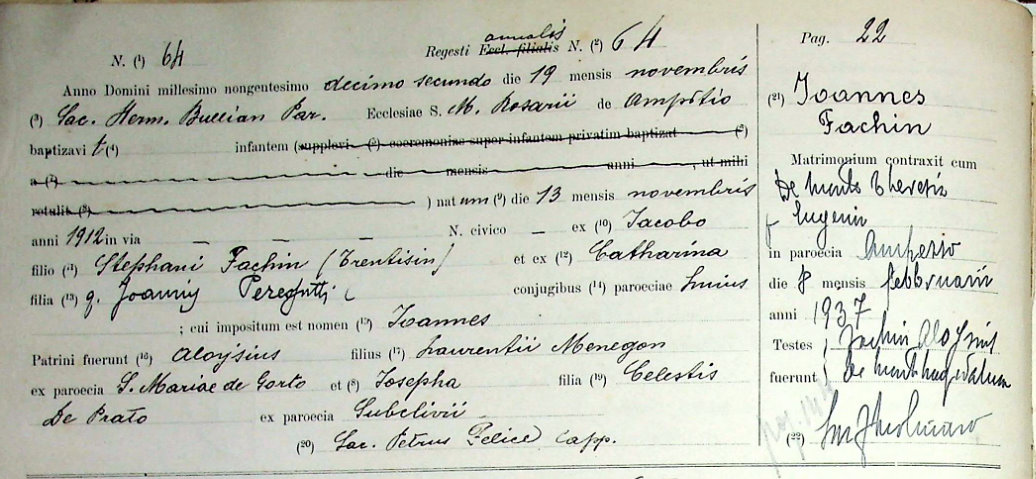 N. (1) 64
Regesti Eccl. filialis annalis N. (2) 64
Anno Domini millesimo nongentesimo decimo secundo die 19 mensis novembris
(3) Sac. Herm. Bullian Par. Ecclesiae S. M. Rosarii de Ampitio
baptizavi (4) infantem (supplevi (5) coeremoniae super infantem privatim baptizat (6)
a (7) die mensis anni , ut mihi
retulit (8) ) natum (9) die 13 mensis novembris
anni 1912 in via — — — N. civico — ex (10) Jacobo
filio (11) Stephani Fachin (Trentisin) et ex (12) Catharina
filia (13) q. Joannis conjugibus (14) paroeciae hujus
; cui impositum est nomen (15) Joannes
Patrini fuerunt (16) Aloysius filius (17) Laurentii Menegon
ex paroecia S. Mariae de Gorto et (18) Josepha filia (19) Celestis
De Prato ex paroecia Subclivii
(20) Sac. Petrus Felice Capp.
Pag. 22
(21) Joannes
Fachin
Matrimonium contraxit cum
De Monte Theresia
f Eugenii
in paroecia Ampezzo
die 8 mensis februarii
anni 1937
Testes Fachin Aloysius
fuerunt De Monte
(22)